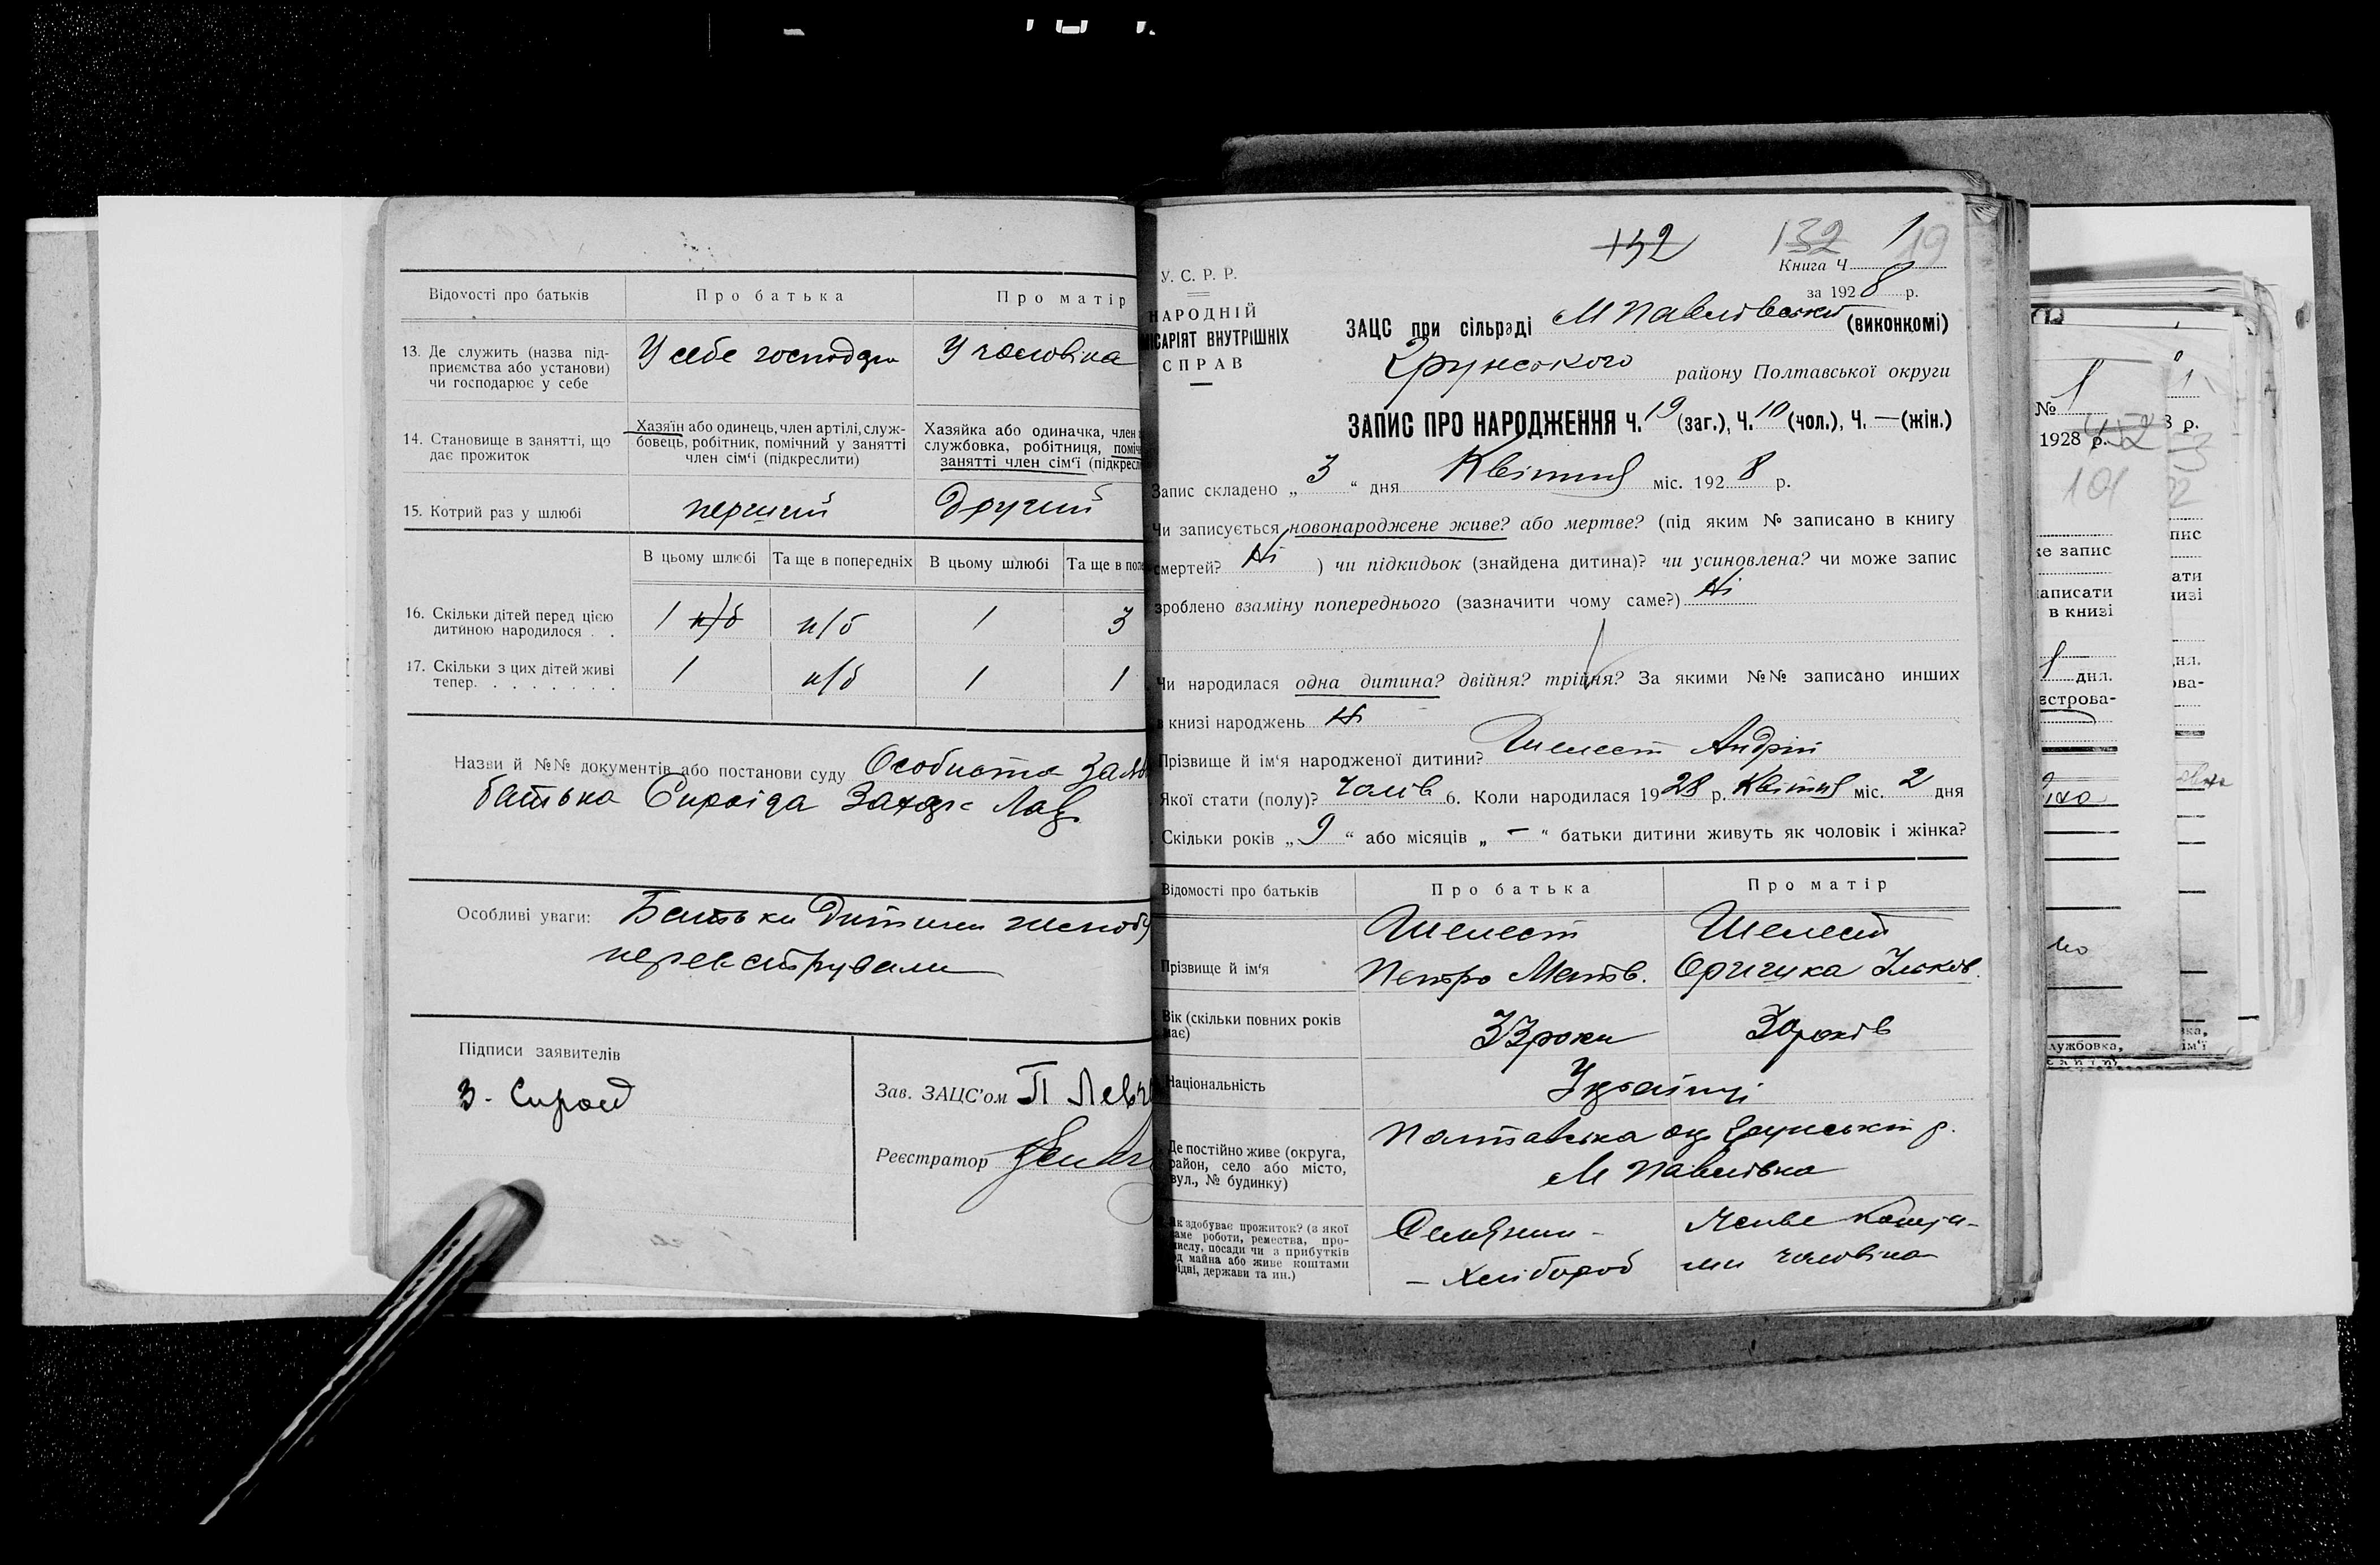 Відомості про батьків
Про батька
Про матір
13. Де служить (назва під-
приємства або установи)
чи господарює у себе
У себе господар
У чоловіка
14. Становище в занятті, що
дає прожиток
Хазяїн або одинець, член артілі, служ-
бовець, робітник, помічний у занятті
член сім'ї (підкреслити)
Хазяйка або одиначка, член
службовка, робітниця, поміч
занятті член сім'ї (підкресл
15. Котрий раз у шлюбі
перший
Другий
В цьому шлюбі
Та ще в попередніх
В цьому шлюбі
Та ще в попе
16. Скільки дітей перед цією
дитиною народилося . .
1 н/б
н/б
1
3
17. Скільки з цих дітей живі
тепер. . . . . . . .
1
н/б
1
1
Назви й №№ документів або постанови суду Особиста Заяв
батька Сироїда Захар
Особливі уваги: Батьки Дитини
Підписи заявителів
З. Сироїд
Зав. ЗАЦС'ом П Левч
Реєстратор
132
132
1
19
У. С. Р. Р.
НАРОДНІЙ
МІСАРІЯТ ВНУТРІШНІХ
СПРАВ
Книга Ч
за 1928 р.
ЗАЦС при сільраді М Павлівській (виконкомі)
Грунського району Полтавської округи
ЗАПИС ПРО НАРОДЖЕННЯ Ч. 19 (заг.), Ч. 10 (чол.), Ч. — (жін.)
Запис складено „ 3 “ дня Квітня міс. 1928 р.
Чи записується новонароджене живе? або мертве? (під яким № записано в книгу
смертей? Ні ) чи підкидьок (знайдена дитина)? чи усиновлена? чи може запис
зроблено взаміну попереднього (зазначити чому саме?) Ні
Чи народилася одна дитина? двійня? трійня? За якими №№ записано инших
в книзі народжень Ні
Прізвище й ім'я народженої дитини? Шелест Андрій
Якої стати (полу)? Чолов 6. Коли народилася 1928 р. Квітня міс. 2 дня
Скільки років „ 9 “ або місяців „ — “ батьки дитини живуть як чоловік і жінка?
Відомості про батьків
Про батька
Про матір
Прізвище й ім'я
Шелест
Петро Матв.
Шелест
Оришка Ільков.
Вік (скільки повних років
має)
33 роки
30 років
Національність
Українці
Де постійно живе (округа,
район, село або місто,
вул., № будинку)
Полтавська ок Грунський р.
М Павлівка
Як здобуває прожиток? (з якої
саме роботи, ремества, про-
мислу, посади чи з прибутків
од майна або живе коштами
рідні, держави та ин.)
Селянин -
- Хлібороб
Живе кошта-
ми чоловіка
№ 1
1928 р.
8 р.
101
же запис
пис
записати
в книзі
дня.
естрова-
лужбовка,